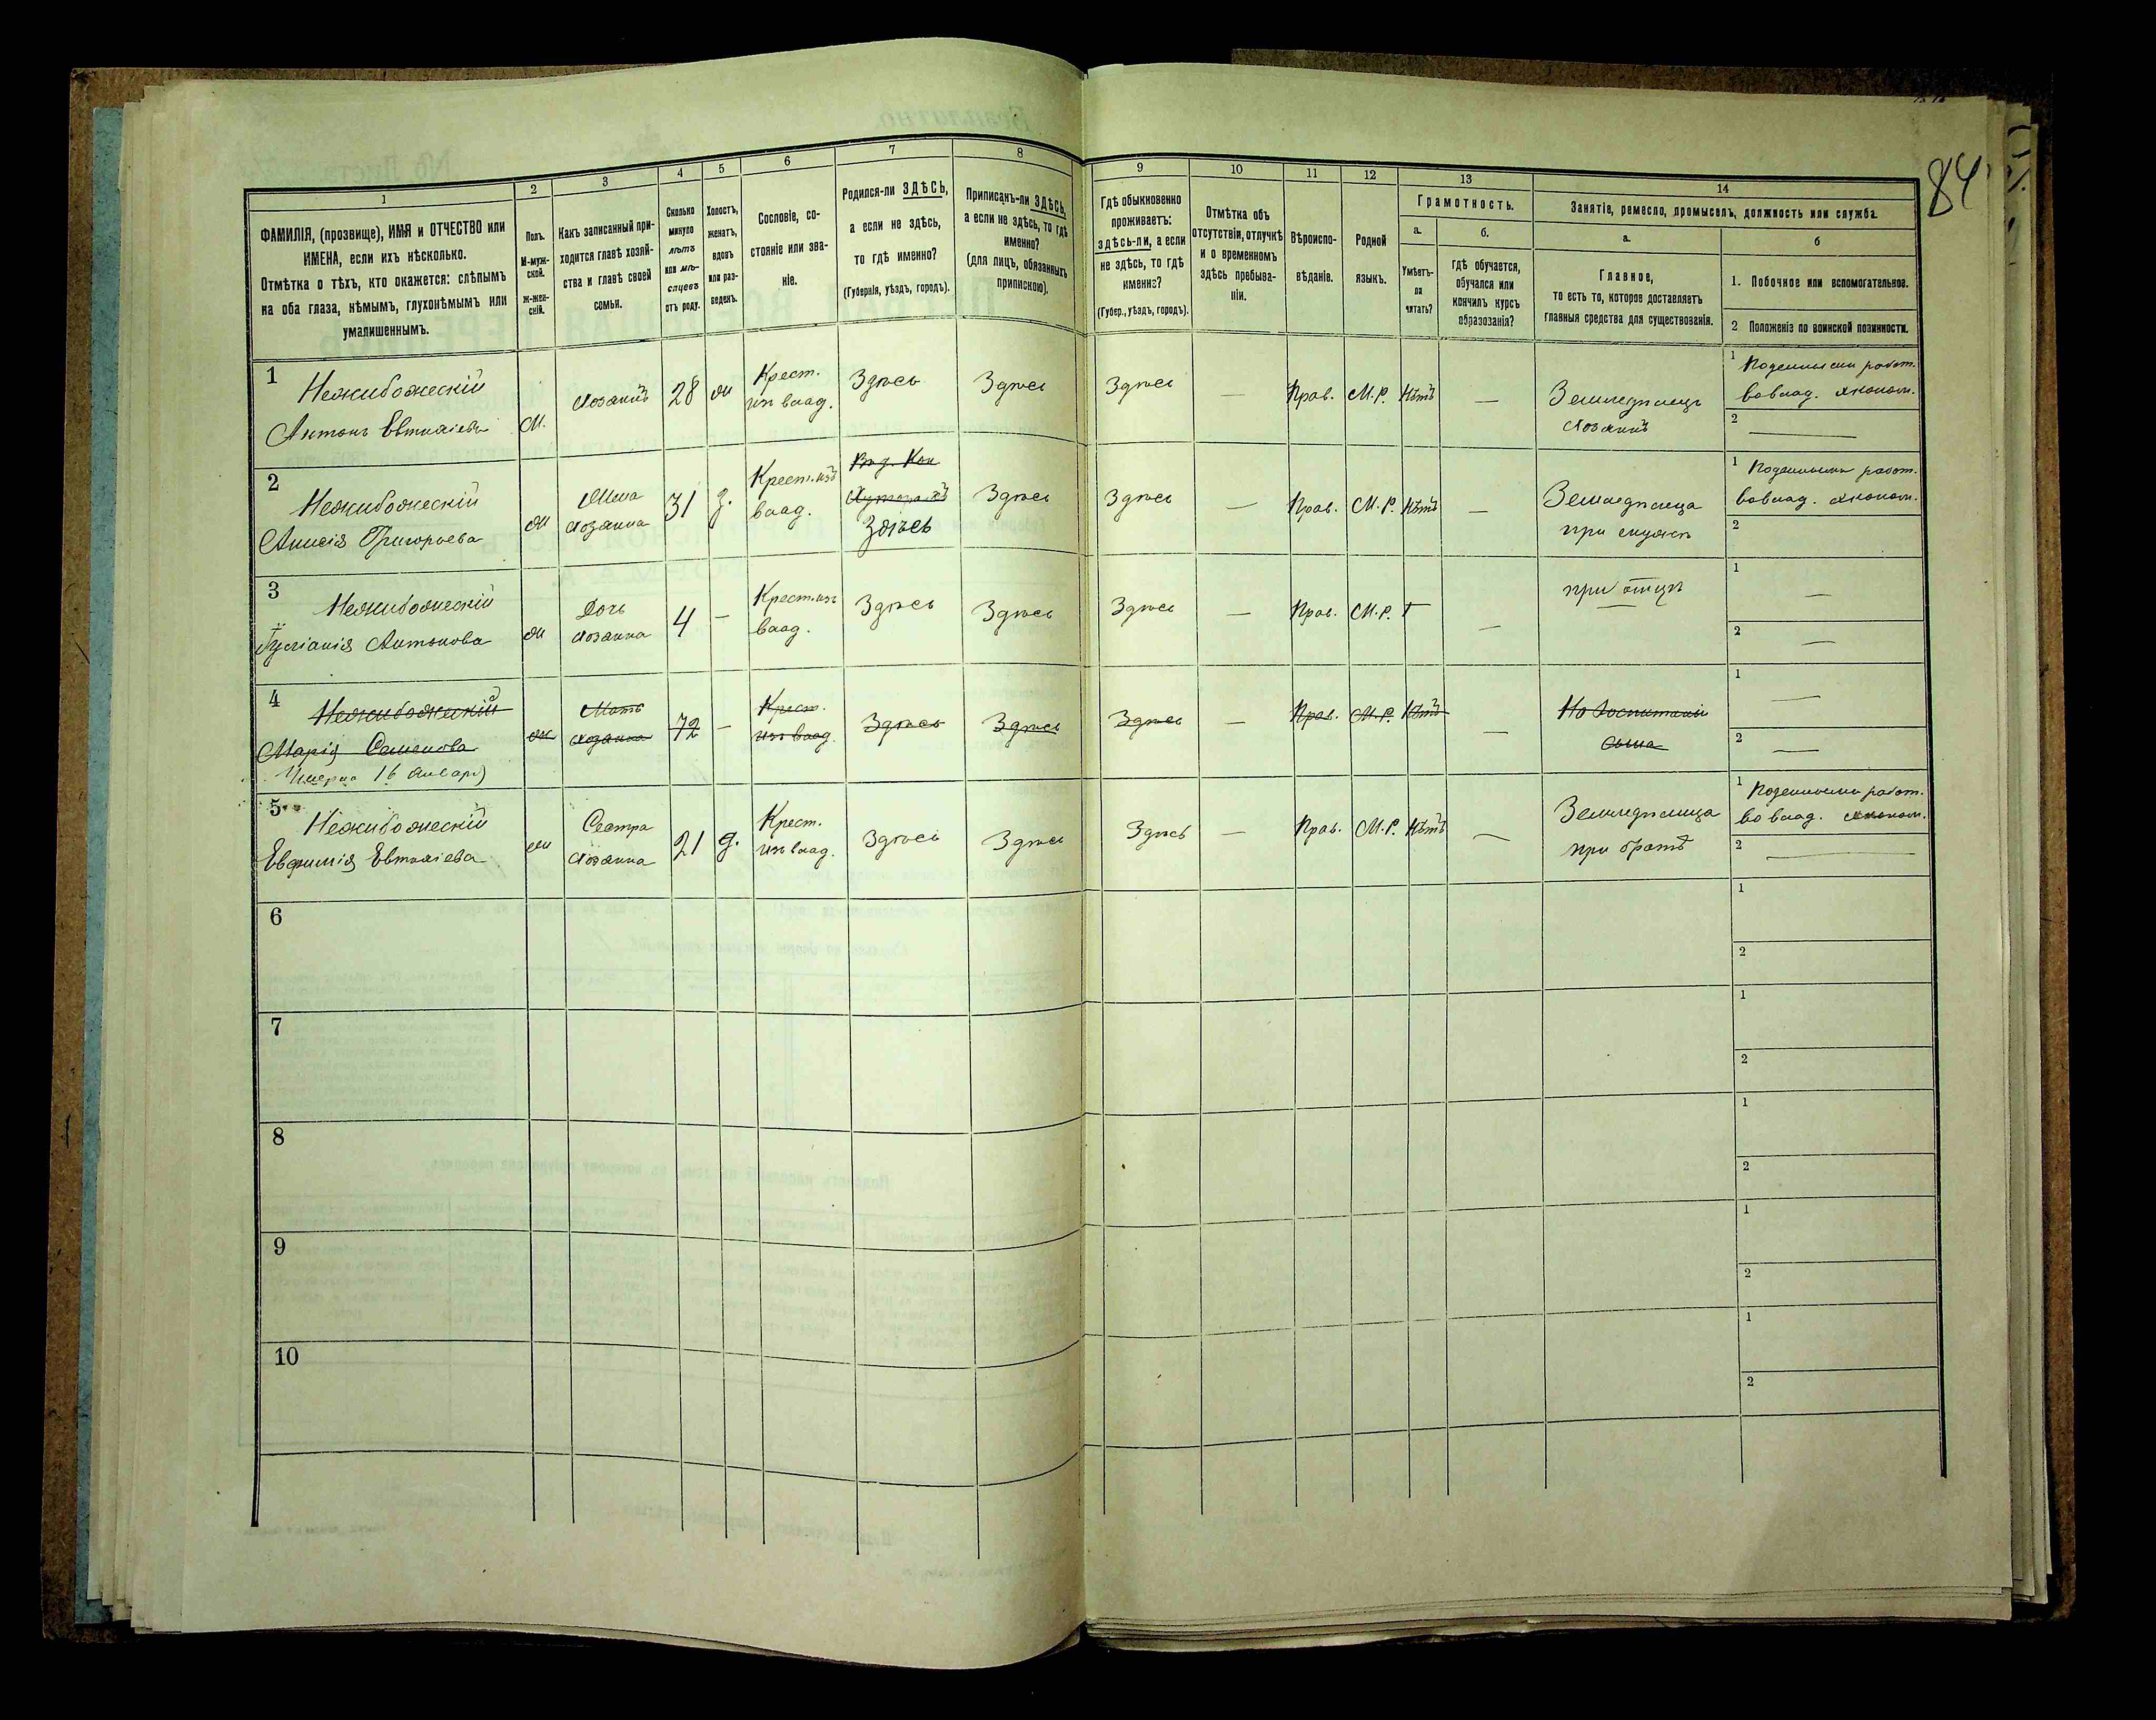 84
1
2
3
4
5
6
7
8
ФАМИЛІЯ, (прозвище), ИМЯ и ОТЧЕСТВО или
ИМЕНА, если ихъ нѣсколько.
Отмѣтка о тѣхъ, кто окажется: слѣпымъ
на оба глаза, нѣмымъ, глухонѣмымъ или
умалишеннымъ.
Полъ.
М-муж-
ской.
ж-жен-
скій.
Какъ записанный при-
ходится главѣ хозяй-
ства и главѣ своей
семьи.
Сколько
минуло
лѣтъ
или мѣ-
сяцевъ
отъ роду.
Холостъ,
женатъ,
вдовъ
или раз-
веденъ.
Сословіе, со-
стояніе или зва-
ніе.
Родился-ли ЗДѢСЬ,
а если не здѣсь,
то гдѣ именно?
(Губернія, уѣздъ, городъ).
Приписанъ-ли ЗДѢСЬ,
а если не здѣсь, то гдѣ
именно?
(для лицъ, обязанныхъ
припискою).
9
10
11
12
13
14
Гдѣ обыкновенно
проживаетъ:
здѣсь-ли, а если
не здѣсь, то гдѣ
именно?
(Губер., уѣздъ, городъ).
Отмѣтка объ
отсутствіи, отлучкѣ
и о временномъ
здѣсь пребыва-
ніи.
Вѣроиспо-
вѣданіе.
Родной
языкъ.
Грамотность.
а.
Умѣетъ-
ли
читать?
б.
Гдѣ обучается,
обучался или
кончилъ курсъ
образованія?
Занятіе, ремесло, промыселъ, должность или служба.
а.
Главное,
то есть то, которое доставляетъ
главныя средства для существованія.
б
1. Побочное или вспомогательное.
2 Положеніе по воинской повинности.
1
Нежибожескій
Антонъ Евтихіевъ
М.
Хозяинъ
28
ж
Крест.
изъ влад.
Здѣсь
Здѣсь
Здѣсь
—
Прав.
М.Р.
Нѣтъ
—
Земледѣлецъ
Хозяинъ
1 Поденныхъ работ.
во влад. эконом.
2 —
2
Нежибожескій
Анисія Григорьева
ж
Жена
хозяина
31
з.
Крест. изъ
влад.
Здѣсь
Здѣсь
Здѣсь
—
Прав.
М.Р.
Нѣтъ
—
Земледѣлица
при мужѣ
1 Поденныхъ работ.
во влад. эконом.
2
3
Нежибожескій
Антонова
ж
Дочь
хозяина
4
—
Крест. изъ
влад.
Здѣсь
Здѣсь
Здѣсь
—
Прав.
М.Р.
—
при отцѣ
1 —
2 —
4
Нежибожескій
Марія Семенова
Умерла 16 января
ж
Мать
хозяина
72
—
Крест.
изъ влад.
Здѣсь
Здѣсь
Здѣсь
—
Прав.
М.Р.
Нѣтъ
—
На воспитаніи
сына
1 —
2 —
5
Нежибожескій
Евфимія Евтихіева
ж
Сестра
хозяина
21
д.
Крест.
изъ влад.
Здѣсь
Здѣсь
Здѣсь
—
Прав.
М.Р.
Нѣтъ
—
Земледѣлица
при братѣ
1 Поденныхъ работ.
во влад. эконом.
2 —
6
1
2
7
1
2
8
1
2
9
1
2
10
1
2